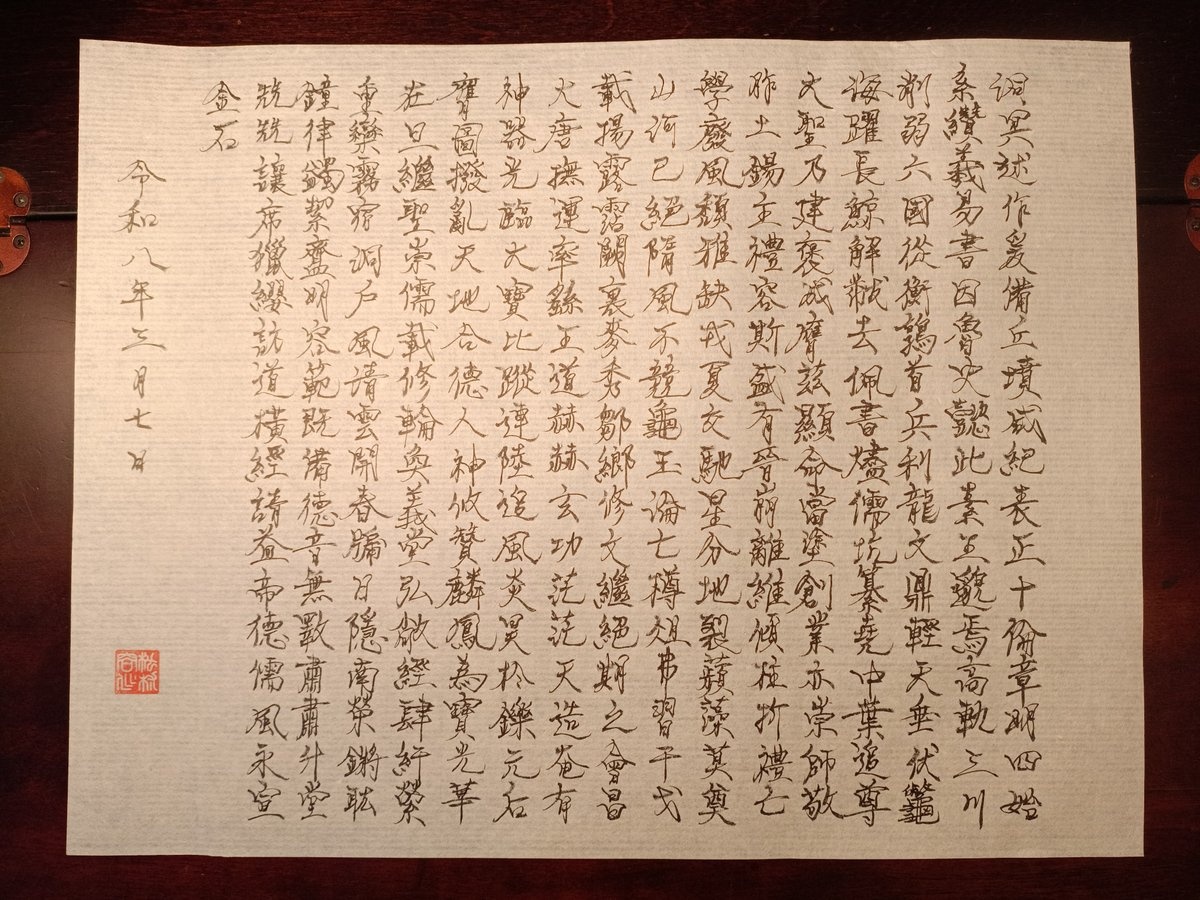 洞冥述作爰備丘墳咸紀表正十倫章明四始
系纘羲易書因魯史懿此素王邈焉高軌三川
削弱六國從衡鶉首兵利龍文鼎輕天垂伏鼈
海躍長鯨解黻去佩書燼儒坑纂堯中葉追尊
大聖乃建褒成膺茲顯命當塗創業亦崇師敬
胙土錫圭禮容斯盛有晉崩離維傾柱折禮亡
學廢風頹雅缺戎夏交馳星分地裂蘋藻莫奠
山河已絕隋風不競龜玉淪亡樽俎弗習干戈
載揚露霑闕裏麥秀鄒鄉修文繼絕期之會昌
大唐撫運率繇王道赫赫玄功茫茫天造奄有
神器光臨大寶比蹤連陸追風炎昊於鑠元后
膺圖撥亂天地合德人神攸贊麟鳳為寶光華
在旦繼聖崇儒載修輪奐義堂弘敞經肆紆縈
重欒霧宿洞戶風清雲開春牖日隱南榮鏘耾
鐘律蠲絜齍明容範既備德音無斁肅肅升堂
兟兟讓席獵纓訪道橫經請益帝德儒風永宣
金石
令和八年三月七日